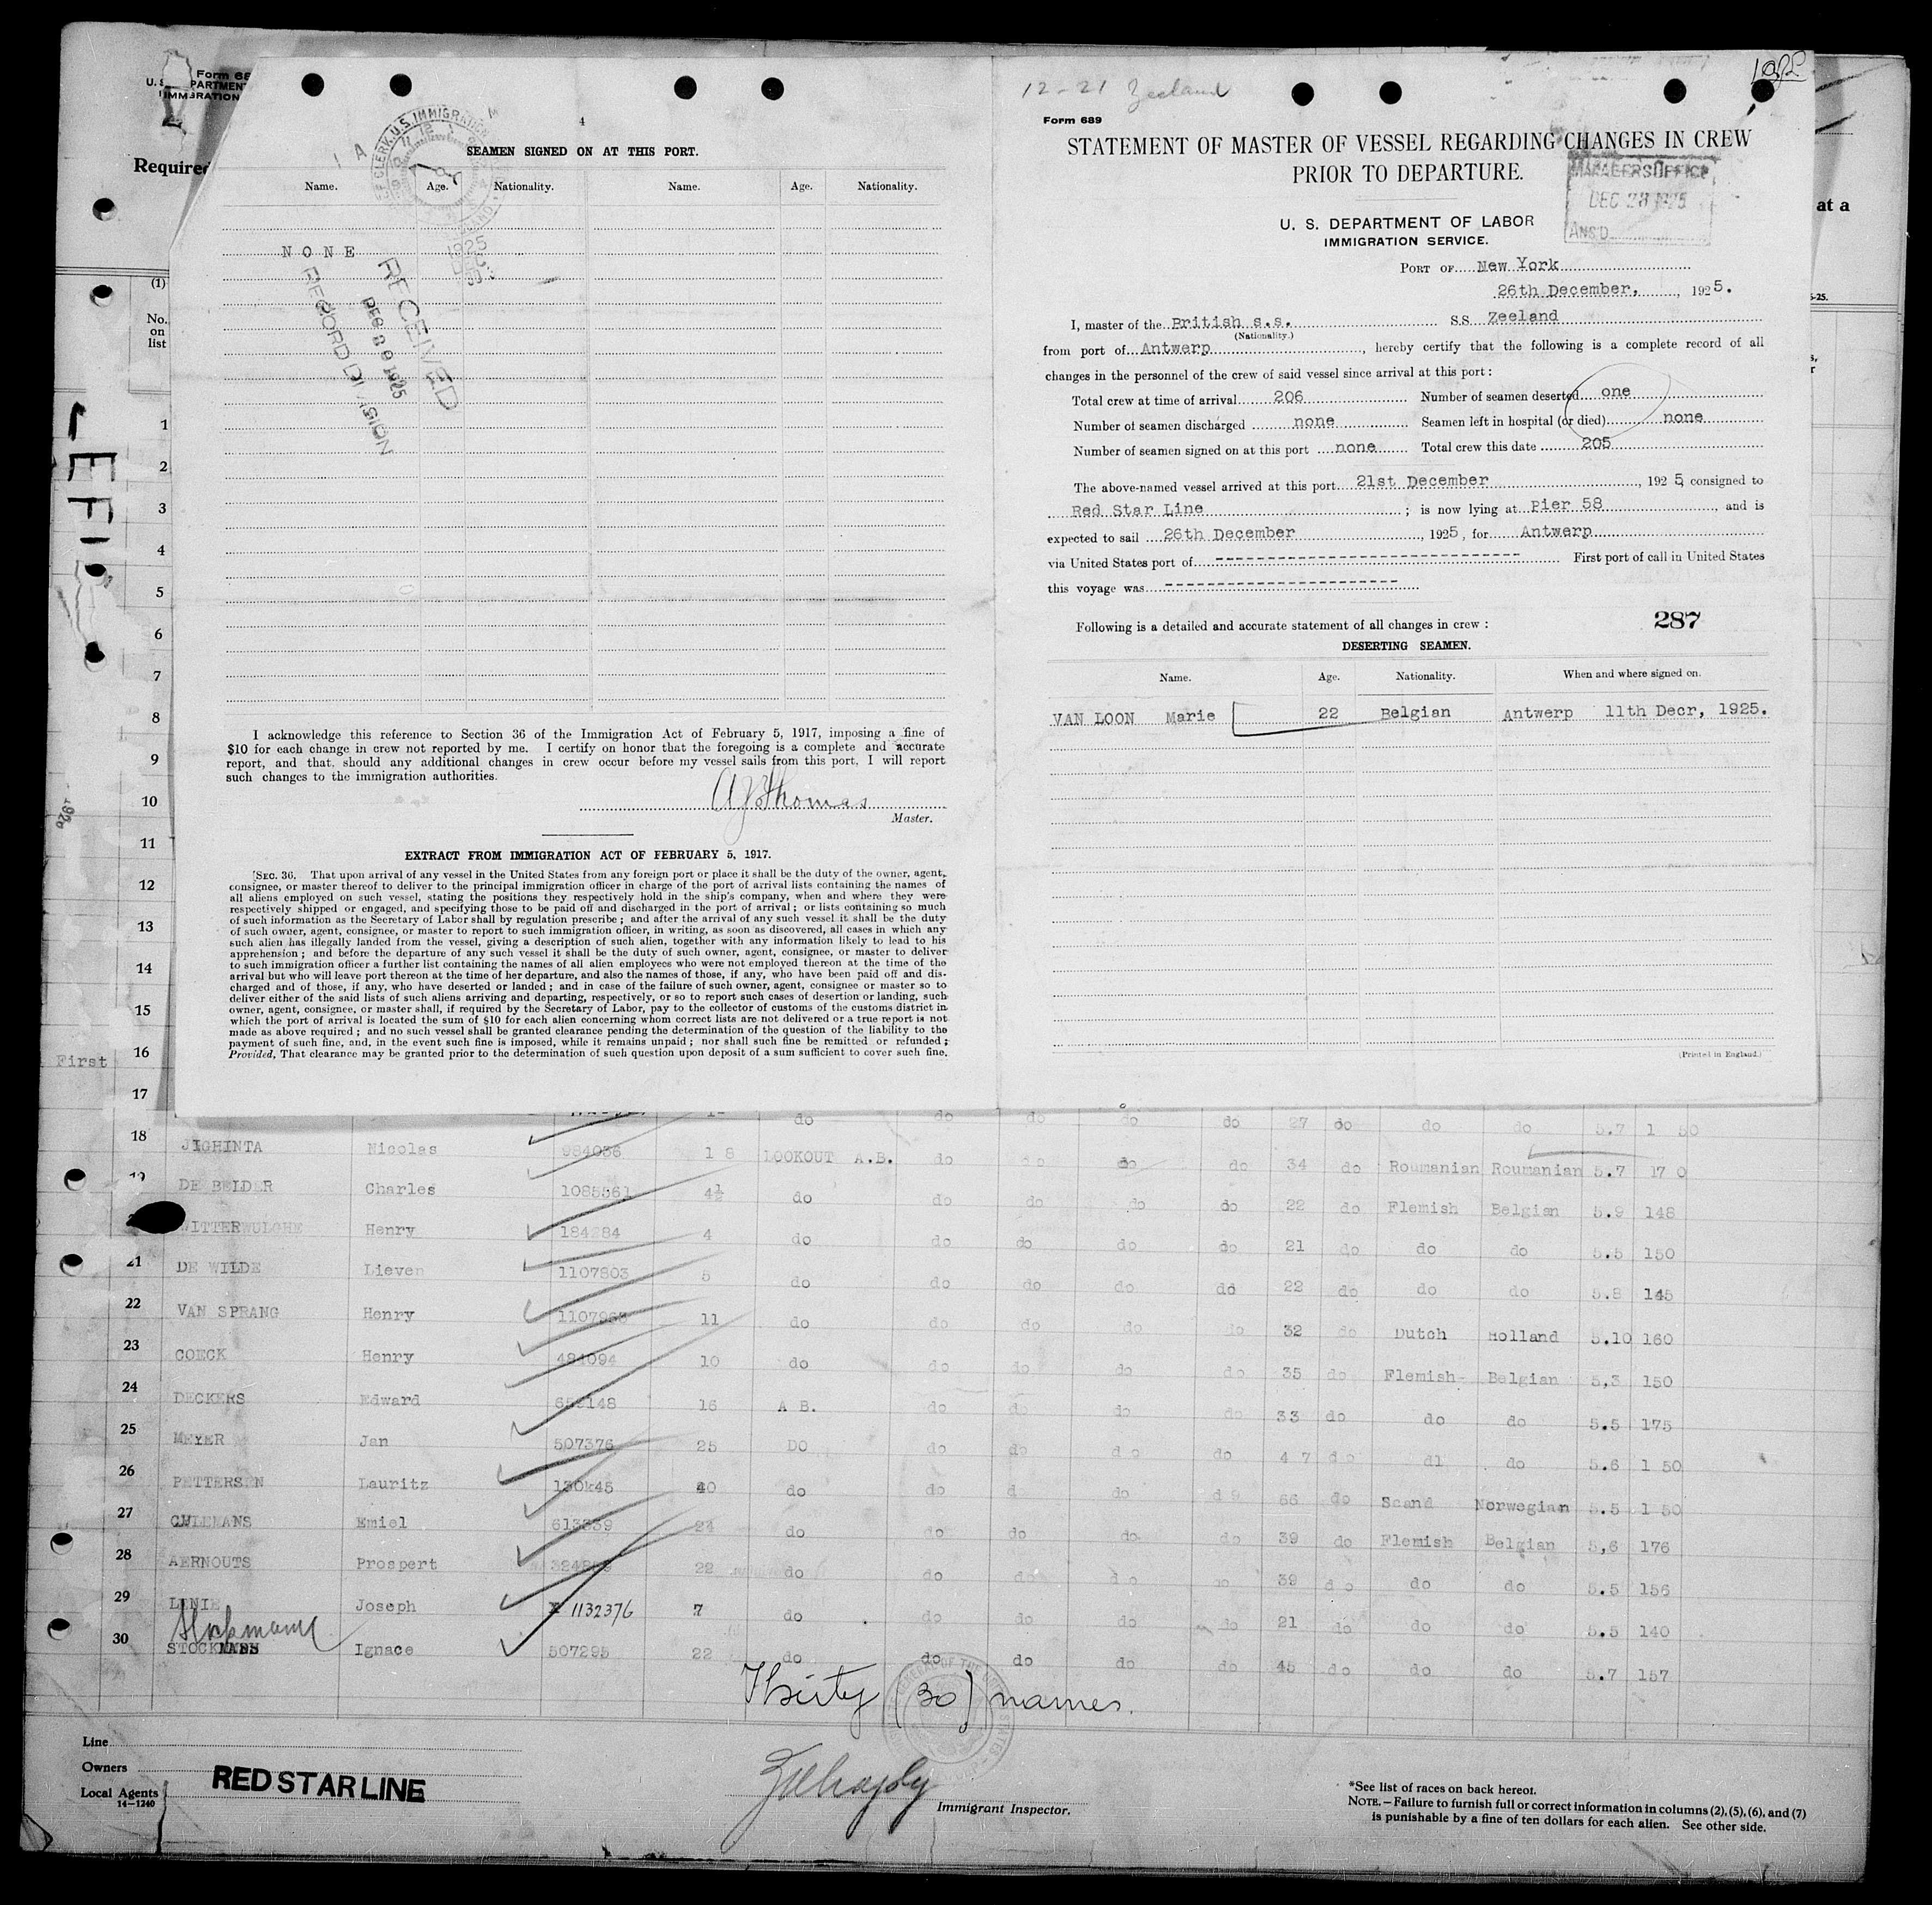 Form 68
U. S. DEPARTMENT
IMMIGRATION
Required
at a
(1)
No.
on
list
4
SEAMEN SIGNED ON AT THIS PORT.
Name. Age. Nationality. Name. Age. Nationality.
NONE
1925
RECEIVED
DEC 29 1925
RECORD DIVISION
I acknowledge this reference to Section 36 of the Immigration Act of February 5, 1917, imposing a fine of
$10 for each change in crew not reported by me. I certify on honor that the foregoing is a complete and accurate
report, and that, should any additional changes in crew occur before my vessel sails from this port, I will report
such changes to the immigration authorities.
Thomas
Master.
EXTRACT FROM IMMIGRATION ACT OF FEBRUARY 5, 1917.
SEC. 36. That upon arrival of any vessel in the United States from any foreign port or place it shall be the duty of the owner, agent,
consignee, or master thereof to deliver to the principal immigration officer in charge of the port of arrival lists containing the names of
all aliens employed on such vessel, stating the positions they respectively hold in the ship's company, when and where they were
respectively shipped or engaged, and specifying those to be paid off and discharged in the port of arrival; or lists containing so much
of such information as the Secretary of Labor shall by regulation prescribe; and after the arrival of any such vessel it shall be the duty
of such owner, agent, consignee, or master to report to such immigration officer, in writing, as soon as discovered, all cases in which any
such alien has illegally landed from the vessel, giving a description of such alien, together with any information likely to lead to his
apprehension; and before the departure of any such vessel it shall be the duty of such owner, agent, consignee, or master to deliver
to such immigration officer a further list containing the names of all alien employees who were not employed thereon at the time of the
arrival but who will leave port thereon at the time of her departure, and also the names of those, if any, who have been paid off and dis-
charged and of those, if any, who have deserted or landed; and in case of the failure of such owner, agent, consignee or master so to
deliver either of the said lists of such aliens arriving and departing, respectively, or so to report such cases of desertion or landing, such
owner, agent, consignee, or master shall, if required by the Secretary of Labor, pay to the collector of customs of the customs district in
which the port of arrival is located the sum of $10 for each alien concerning whom correct lists are not delivered or a true report is not
made as above required; and no such vessel shall be granted clearance pending the determination of the question of the liability to the
payment of such fine, and, in the event such fine is imposed, while it remains unpaid; nor shall such fine be remitted or refunded;
Provided, That clearance may be granted prior to the determination of such question upon deposit of a sum sufficient to cover such fine.
12-21 Zeeland
Form 689
STATEMENT OF MASTER OF VESSEL REGARDING CHANGES IN CREW
PRIOR TO DEPARTURE.
MANAGERS OFFICE
DEC 28 1925
ANS'D
U. S. DEPARTMENT OF LABOR
IMMIGRATION SERVICE.
PORT OF New York
26th December, , 1925.
I, master of the British s.s. SS Zeeland
(Nationality.)
from port of Antwerp , hereby certify that the following is a complete record of all
changes in the personnel of the crew of said vessel since arrival at this port:
Total crew at time of arrival 206 Number of seamen deserted one
Number of seamen discharged none Seamen left in hospital (or died) none
Number of seamen signed on at this port none Total crew this date 205
The above-named vessel arrived at this port 21st December , 1925, consigned to
Red Star Line ; is now lying at Pier 58 , and is
expected to sail 26th December , 1925, for Antwerp
via United States port of ---------- First port of call in United States
this voyage was ----------
Following is a detailed and accurate statement of all changes in crew: 287
DESERTING SEAMEN.
Name. Age. Nationality. When and where signed on.
VAN LOON Marie 22 Belgian Antwerp 11th Decr, 1925.
(Printed in England.)
1
2
3
4
5
6
7
8
9
10
11
12
13
14
15
16
First
17 do do do do do 27 do do do 5.7 1 50
18 JIGHINTA Nicolas 984036 18 LOOKOUT A.B. do do do do 34 do Roumanian Roumanian 5.7 17 0
19 DE BELDER Charles 1085561 4½ do do do do do 22 do Flemish Belgian 5.9 148
WITTERWULGHE Henry 184284 4 do do do do do 21 do do do 5.5 150
21 DE WILDE Lieven 1107803 5 do do do do do 22 do do do 5.8 145
22 VAN SPRANG Henry 11 do do do do do 32 do Dutch Holland 5.10 160
23 COECK Henry 484094 10 do do do do do 35 do Flemish- Belgian 5,3 150
24 DECKERS Edward 16 A B. do do do do 33 do do do 5.5 175
25 MEYER Jan 507376 25 DO do do do do 47 do dl do 5.6 1 50
26 PETTERSEN Lauritz 130k45 40 do do d do d9 66 do Scand Norwegian 5.5 1 50
27 Emiel 613339 24 do do do do do 39 do Flemish Belgian 5,6 176
28 AERNOUTS Prospert 22 do do do do do 39 do do do 5.5 156
29 LENIE Joseph 1132376 7 do do do do do 21 do do do 5.5 140
Stockmans
30 STOCKMANS Ignace 507295 22 do do do do do 45 do do do 5.7 157
Thirty (30) names.
Line
Owners
Local Agents RED STAR LINE
14-1240
Immigrant Inspector.
*See list of races on back hereof.
NOTE.—Failure to furnish full or correct information in columns (2), (5), (6), and (7)
is punishable by a fine of ten dollars for each alien. See other side.